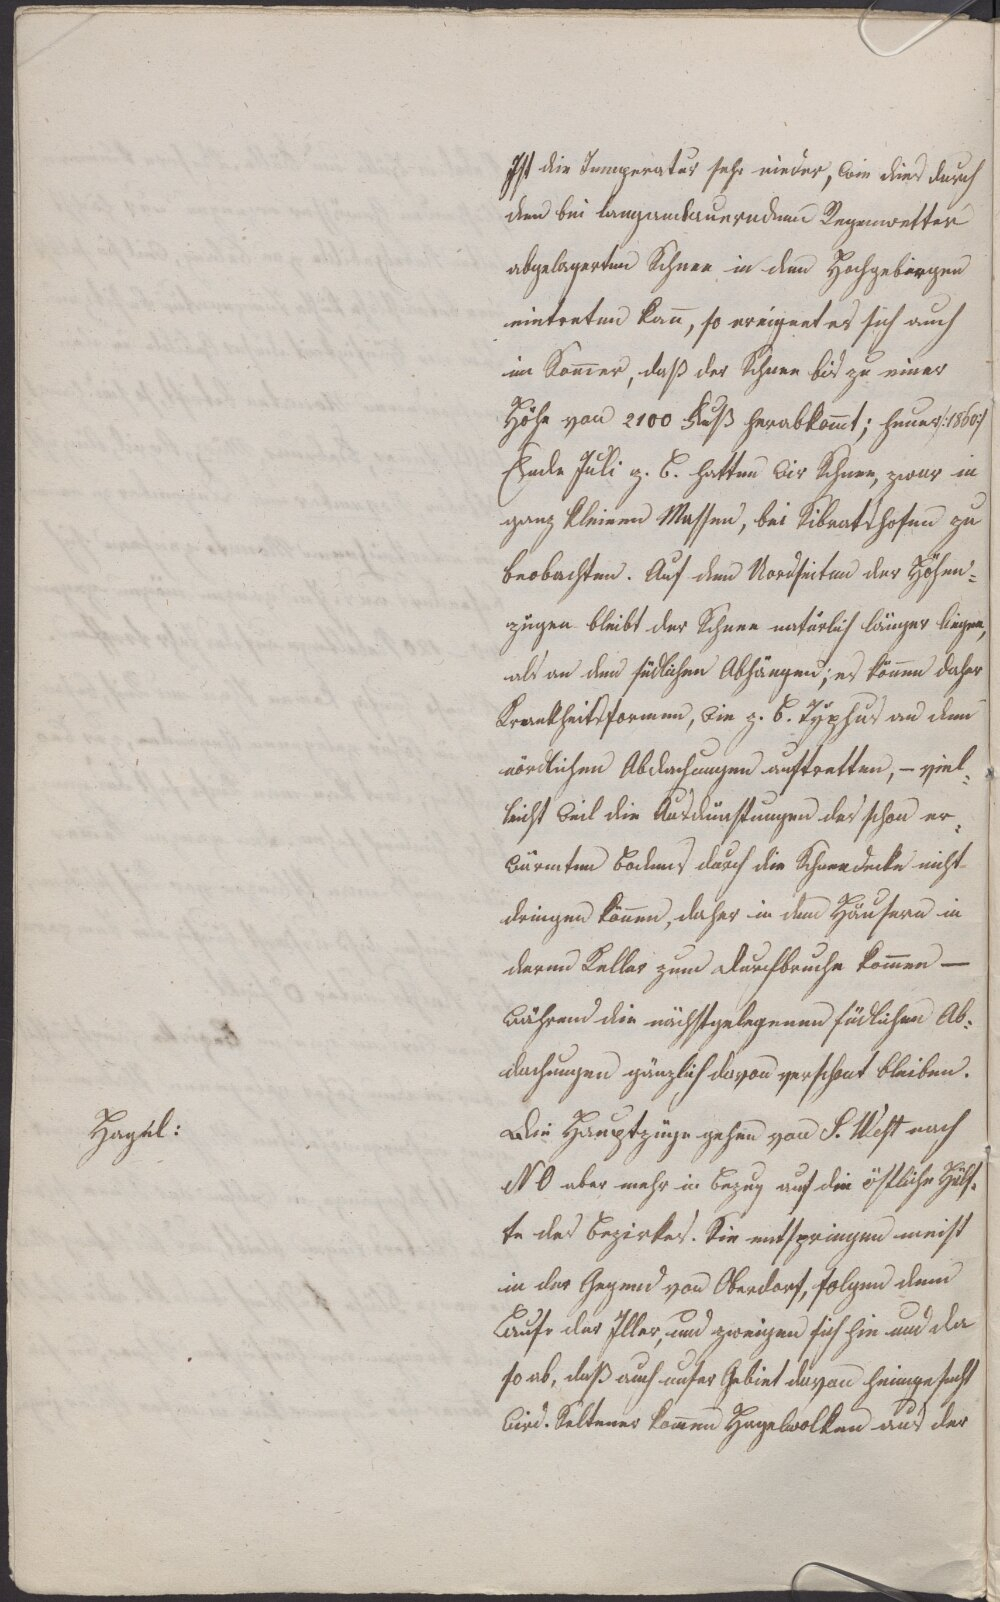 Ist die Temperatur sehr nieder, wie dies durch
den bei langandauerndem Regenwetter
abgelagerten Schnee in den Hochgebirgen
eintreten kann, so ereignet es sich auch
im Sommer, daß der Schnee bis zu einer
Höhe von 2100 Fuß herabkommt; heuer /:1860:/
Ende Juli z. B. hatten wir Schnee, zwar in
ganz kleinen Massen, bei Sibratshofen zu
beobachten. Auf den Nordseiten der Höhen=
zügen bleibt der Schnee natürlich länger liegen,
als an den südlichen Abhängen; es können daher
Krankheitsformen, wie z. B. Typhus an den
nördlichen Abdachungen auftretten, – viel=
leicht weil die Ausdünstungen des schon er=
wärmten Bodens durch die Schneedecke nicht
dringen können, daher in den Häusern in
deren Keller zum Durchbruche kommen –
während die nächstgelegenen südlichen Ab=
dachungen gänzlich davon verschont bleiben.
Hagel:
Die Hauptzüge gehen von S. West nach
N O aber mehr in Bezug auf die östliche Hälf=
te des Bezirkes. Sie entspringen meist
in der Gegend von Oberdorf, folgen dem
Laufe der Iller, und zweigen sich hie und da
so ab, daß auch unser Gebiet davon heimgesucht
wird. Seltener kommen Hagelwolken aus der